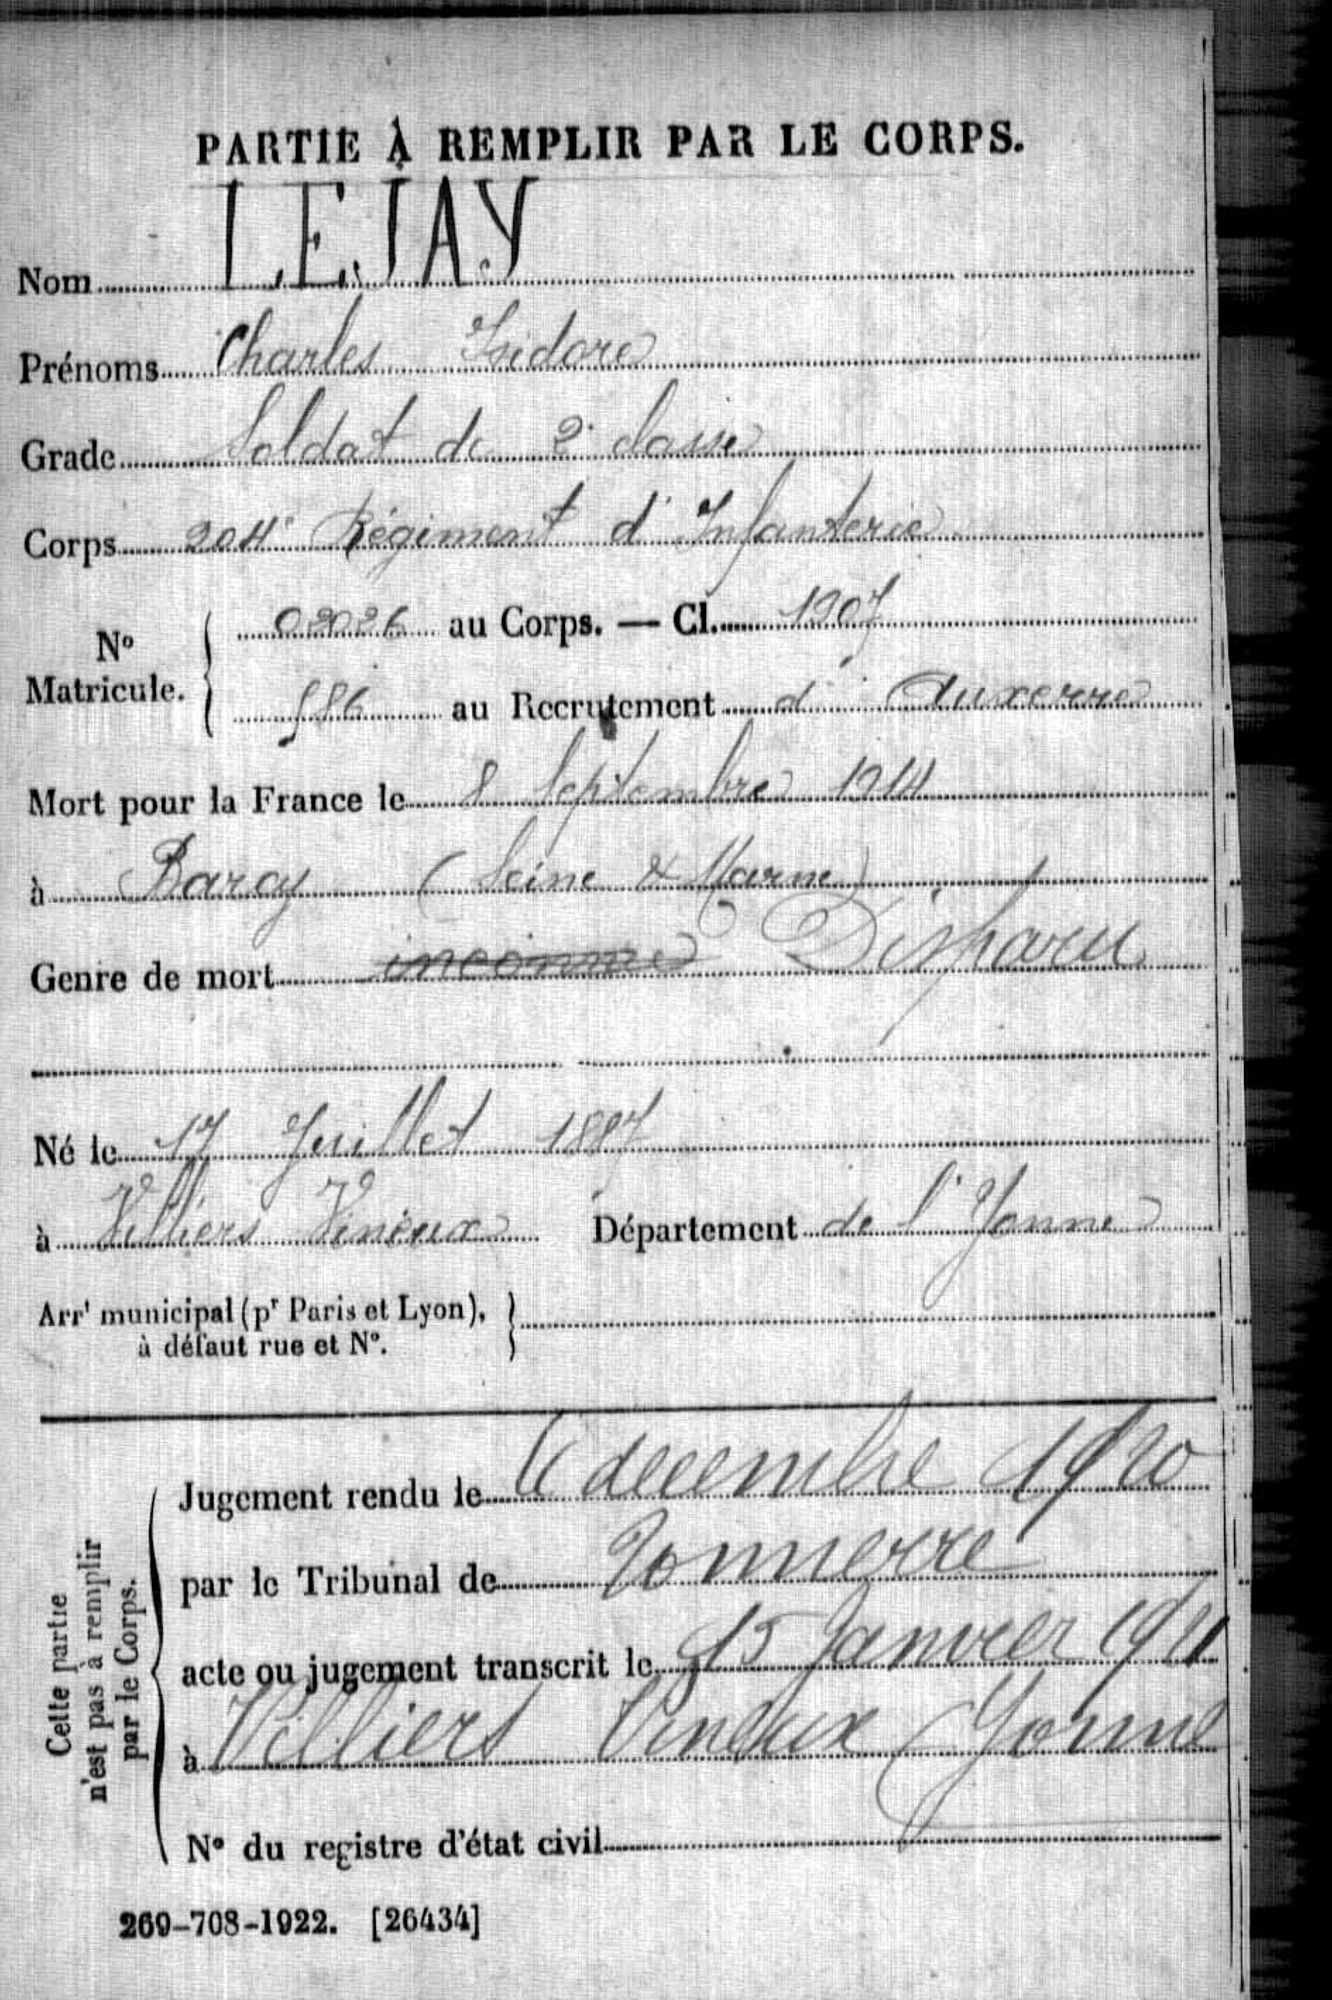 PARTIE À REMPLIR PAR LE CORPS.
Nom LEJAY
Prénoms Charles Isidore
Grade Soldat de 2e classe
Corps 204e Régiment d'Infanterie
No Matricule. 02026 au Corps. — Cl. 1907
586 au Recrutement d'Auxerre
Mort pour la France le 8 Septembre 1914
à Barcy (Seine & Marne)
Genre de mort inconnu Disparu
Né le 17 Juillet 1887
à Villiers Vineux Département de l'Yonne
Arrt municipal (pr Paris et Lyon),
à défaut rue et No.
Cette partie
n'est pas à remplir
par le Corps.
Jugement rendu le decembre 1920
par le Tribunal de Tonnerre
acte ou jugement transcrit le 15 Janvier 1921
à Villiers Vineux Yonne
No du registre d'état civil
269-708-1922. [26434]